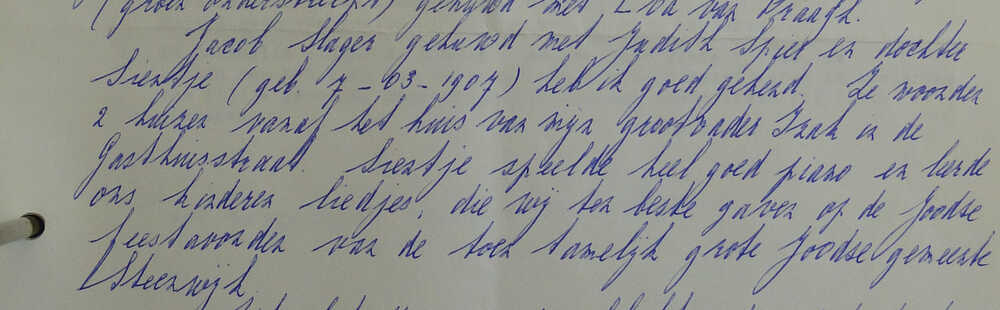 (groen onderstreept) gehuwd met Eva van Praagh.
Jacob Slager gehuwd met Judith Spier en dochter
Sientje (geb. 7-03-1907) heb ik goed gekend. Ze woonden
2 huizen vanaf het huis van mijn grootvader Izak in de
Gasthuisstraat. Sientje speelde heel goed piano en leerde
ons, kinderen liedjes, die wij ten beste gaven op de Joodse
feestavonden van de toen tamelijk grote Joodse gemeente
Steenwijk